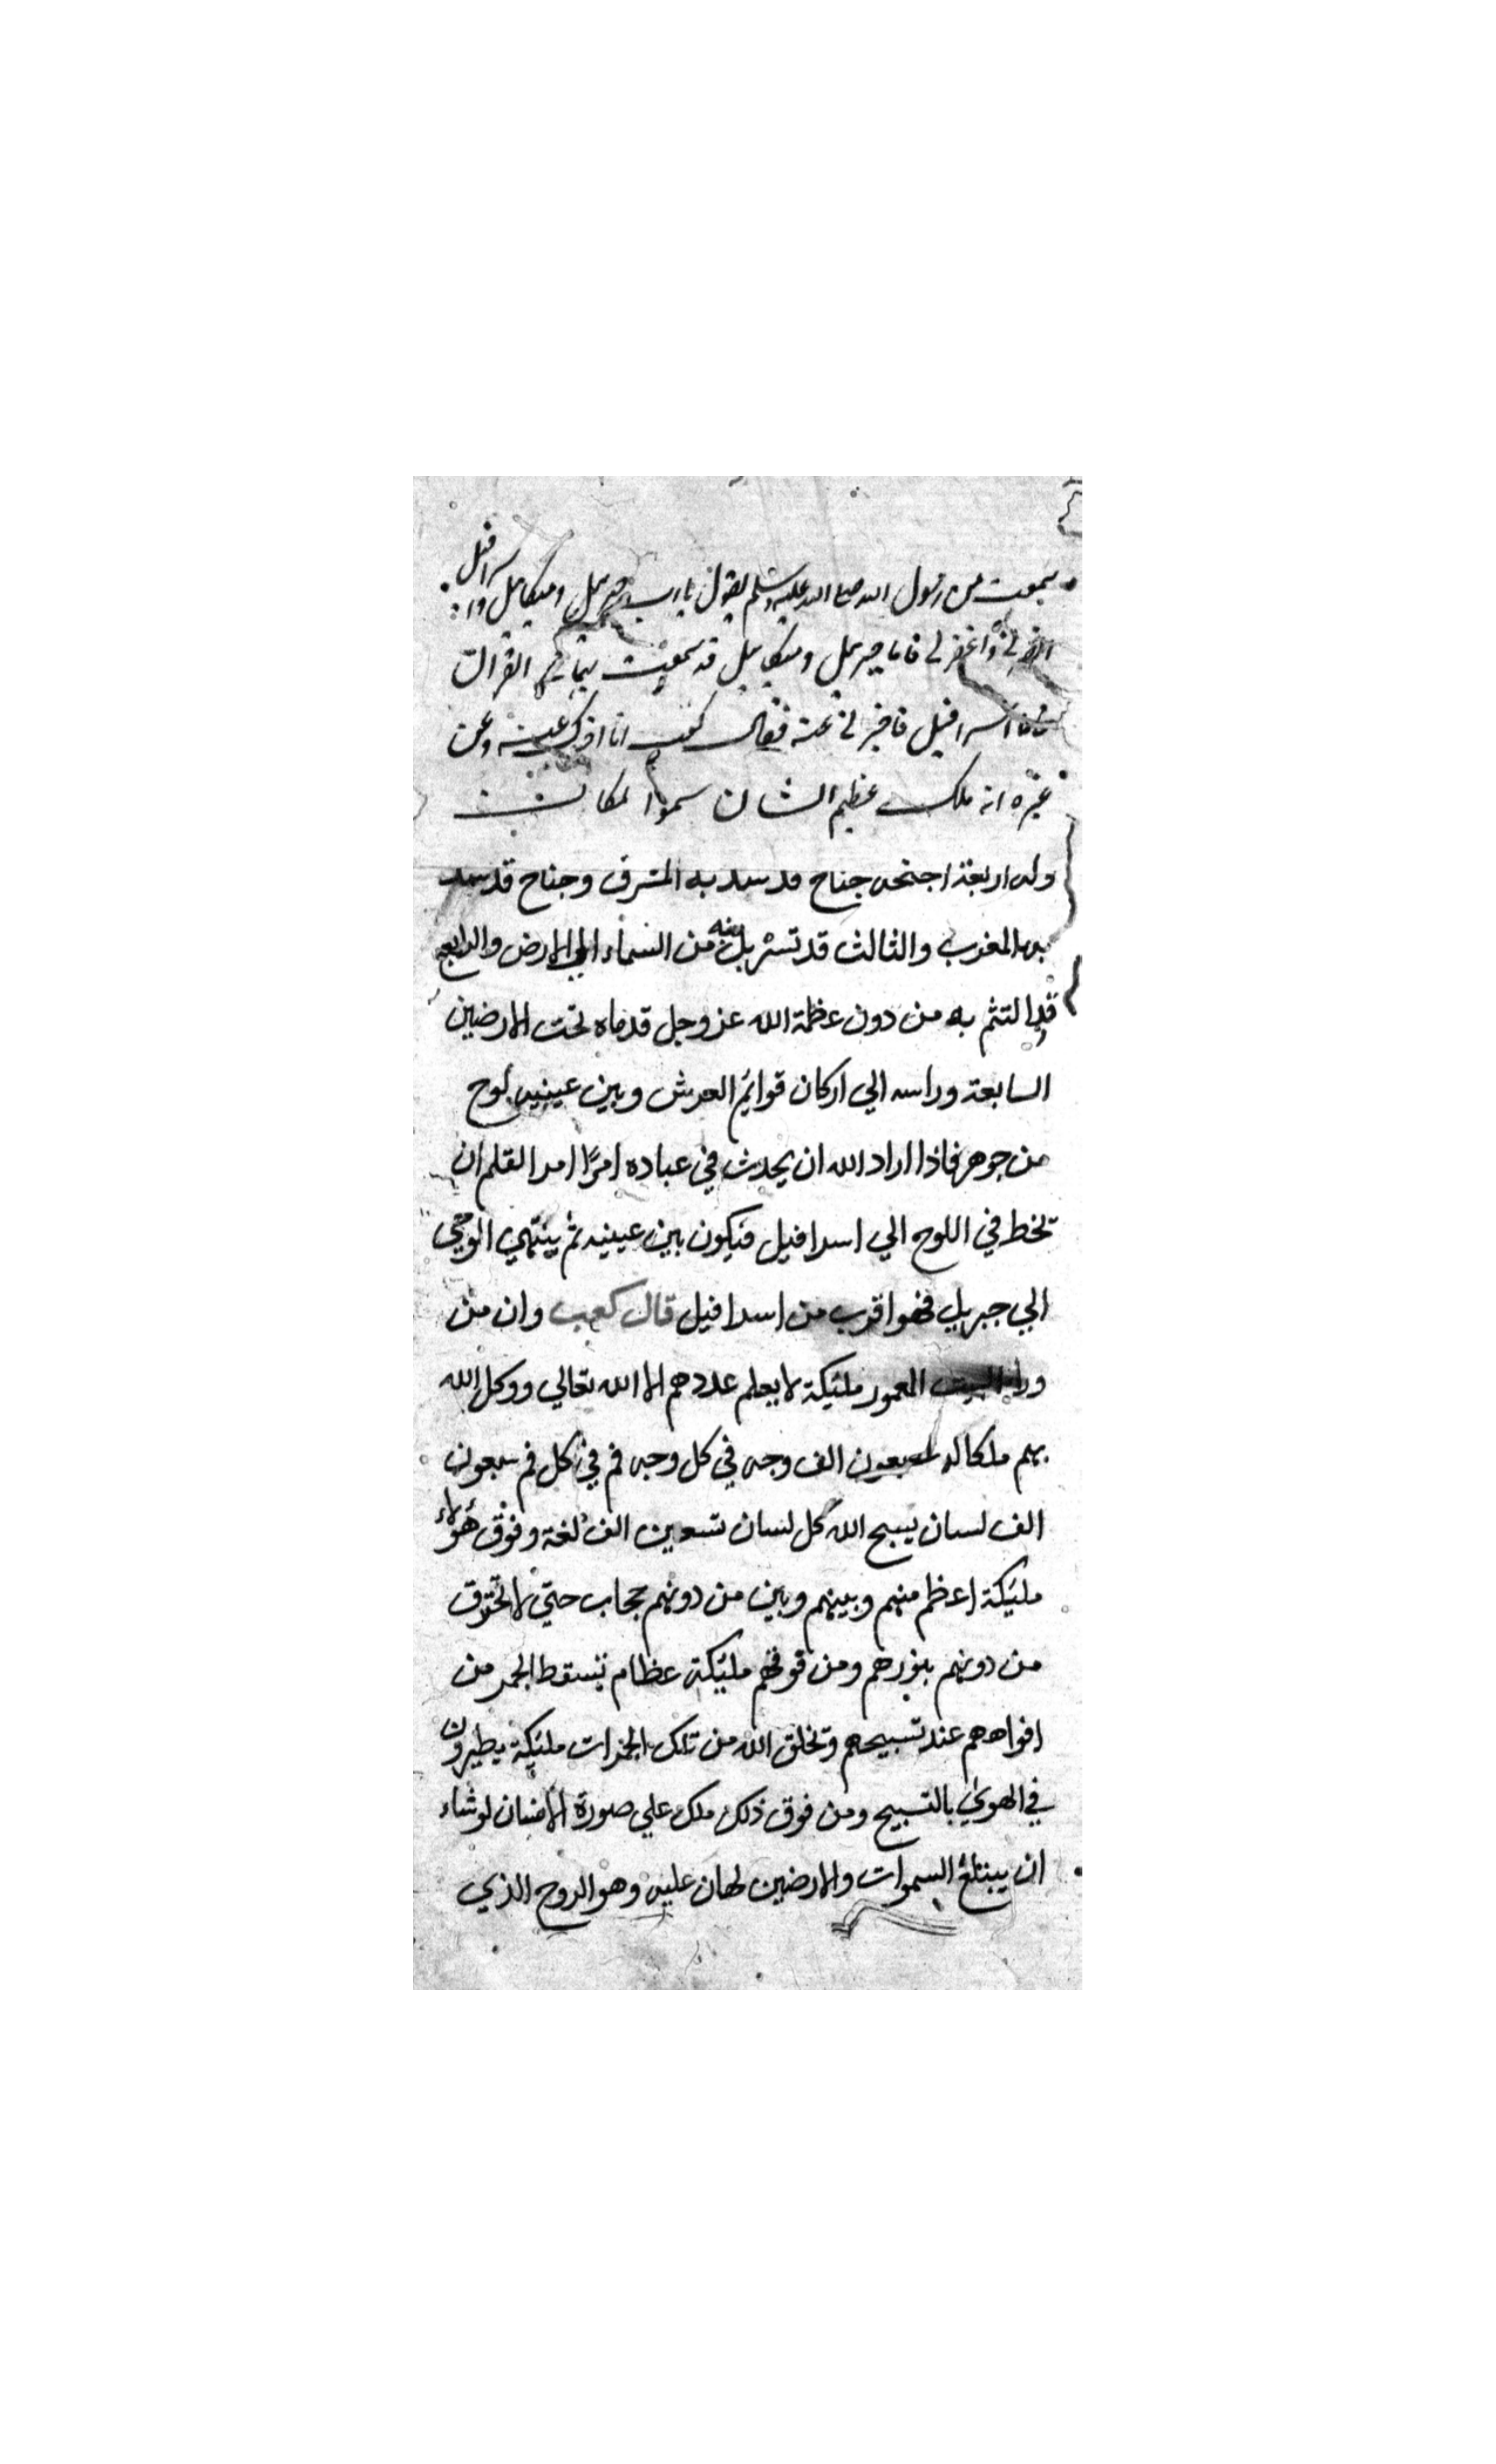 سمعت من رسول الله صلى الله عليه وسلم يقول يا رب جبريل وميكاييل واسرافيل
واغفر لي فاما جبريل وميكاييل قد سمعت بهما في القران
فاما اسرافيل فاخبرني عنه فقال كعب انا اذكر عنه وعن
غيره انه ملك عظيم الشان سمو المكان
وله اربعة اجنحه جناح قد سد به المشرق وجناح قد سد
به المغرب والثالث قد تسربل به من السماء الي الارض والرابع
قد التثم به من دون عظمة الله عز وجل قدماه تحت الارضين
السابعة وراسه الي اركان قوايم العرش وبين عينيه لوح
من جوهر فاذا اراد الله ان يحدث في عباده امرًا امر القلم ان
تخط في اللوح الي اسرافيل فيكون بين عينيه ثم ينتهي الوحي
الي جبريل فهو اقرب من اسرافيل قال كعب وان من
ورا البيت المعمور مليكة لا يعلم عددهم الا الله تعالي ووكل الله
بهم ملكا له سبعون الف وجه في كل وجه فم في كل فم سبعون
الف لسان يسبح الله كل لسان سبعين الف لغة وفوق هؤلاء
مليكة اعظم منهم وبينهم وبين من دونهم حجاب حتي لا تحترق
من دونهم بنورهم ومن فوقهم مليكة عظام يسقط الجمر من
افواههم عند تسبيحهم وتخلق الله من تلك الجمرات مليكة يطيرون
في الهوي بالتسبيح ومن فوق ذلك ملك علي صورة الانسان لو شاء
ان يبتلع السموات والارضين لهان عليه وهو الروح الذي